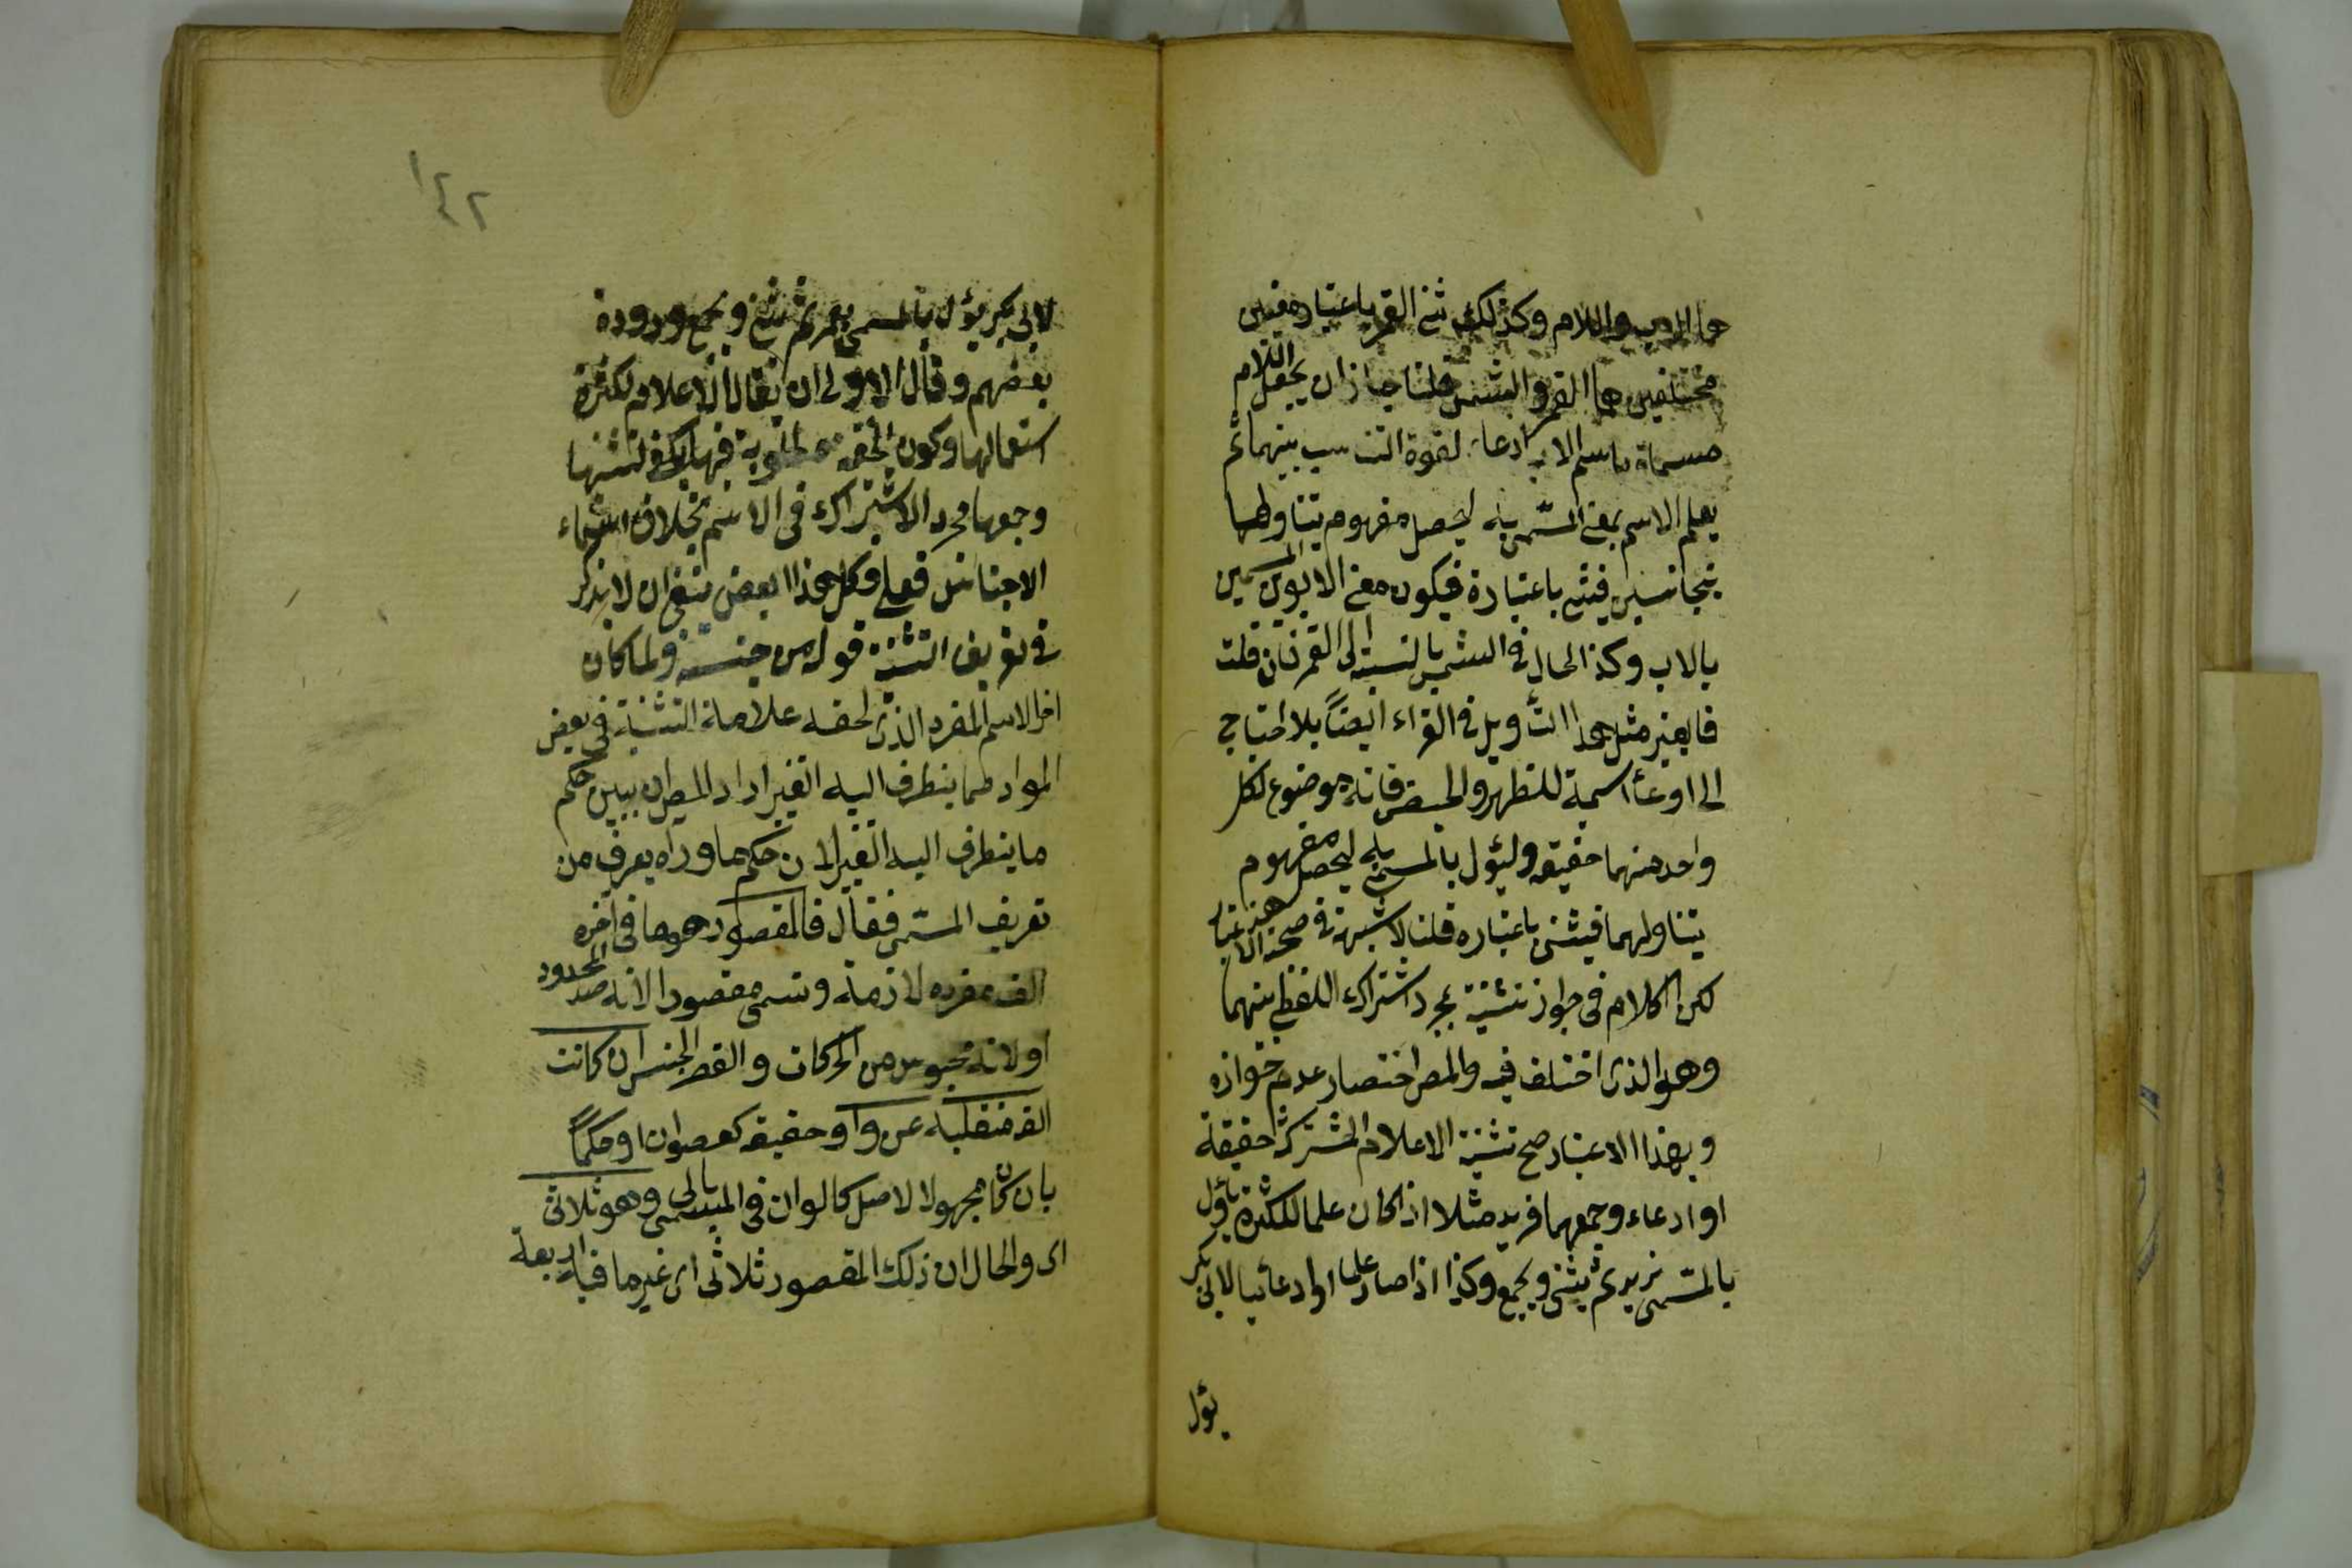 هما الاب والام وكذلك ثنى القمر باعتبار معنيين
مختلفين هما القمر والشمس قلنا جاز ان يجعل اللام
مسماة باسم الاب ادعاء لقوة التناسب بينهما ثم
يعلم الاسم بمعنى المسمى به ليحصل مفهوم يتناولهما
يتجانسين فيثنى باعتباره فيكون معنى الابوين المسمين
بالاب وكذا الحال في الشمس بالنسبة الى القمر فان قلت
فليعتبر مثل هذا التأويل في القراء ايضاً بلا احتياج
الى ادعاء اسمية للطهر والحيض فانه موضوع لكل
واحد منهما حقيقة وليؤل بالمسمى به ليحصل مفهوم
يتناولهما فيثنى باعتباره قلنا لا شبهة في صحة هذا الاعتبار
لكن الكلام في جواز تثنيته بمجرد اشتراك اللفظ بينهما
وهو الذى اختلف فيه والمص اختصار عدم جوازه
وبهذا الاعتبار صح تثنية الاعلام المشتركة حقيقة
او ادعاء وجمعها فزيد مثلا اذا كان علما للكثرة يأول
بالمسمى بزيد ثم يثنى ويجمع وكذا اذا صار علما ادعائيا لابى بكر
يؤل
١٤٢
لابى بكر يؤل بالمسمى بعمر ثم يثنى ويجمع ورده
بعضهم وقال الاولى ان يقال الاعلام لكثرة
استعمالها وكون الخفة مطلوبة فيها يكفى لتثنيتها
وجمعها مجرد الاشتراك في الاسم بخلاف اسماء
الاجناس فعلى هذا ينبغى ان لا يذكر
في تعريف التثنية قوله من جنسه ولما كان
اخر الاسم المفرد الذى لحقه علامة التثنية في بعض
المواد مما يتطرف اليه التغير اراد المص ان يبين حكم
ما يتطرف اليه التغير لان حكم ما وراه يعرف من
تعريف المسمى فقال فالمقصور هو ما في اخره
الف مفرده لازمة وتسمى مقصورا لانه ضد الممدود
او لانه محبوس من الحركات والقصر الحبس ان كانت
الفه منقلبة عن واو حقيقة كعصوان او حكماً
بان كان مجهولا لاصل كالوان في المسمى بالى وهو ثلاثى
اى والحال ان ذلك المقصور ثلاثى اى غير ما فيه اربعة